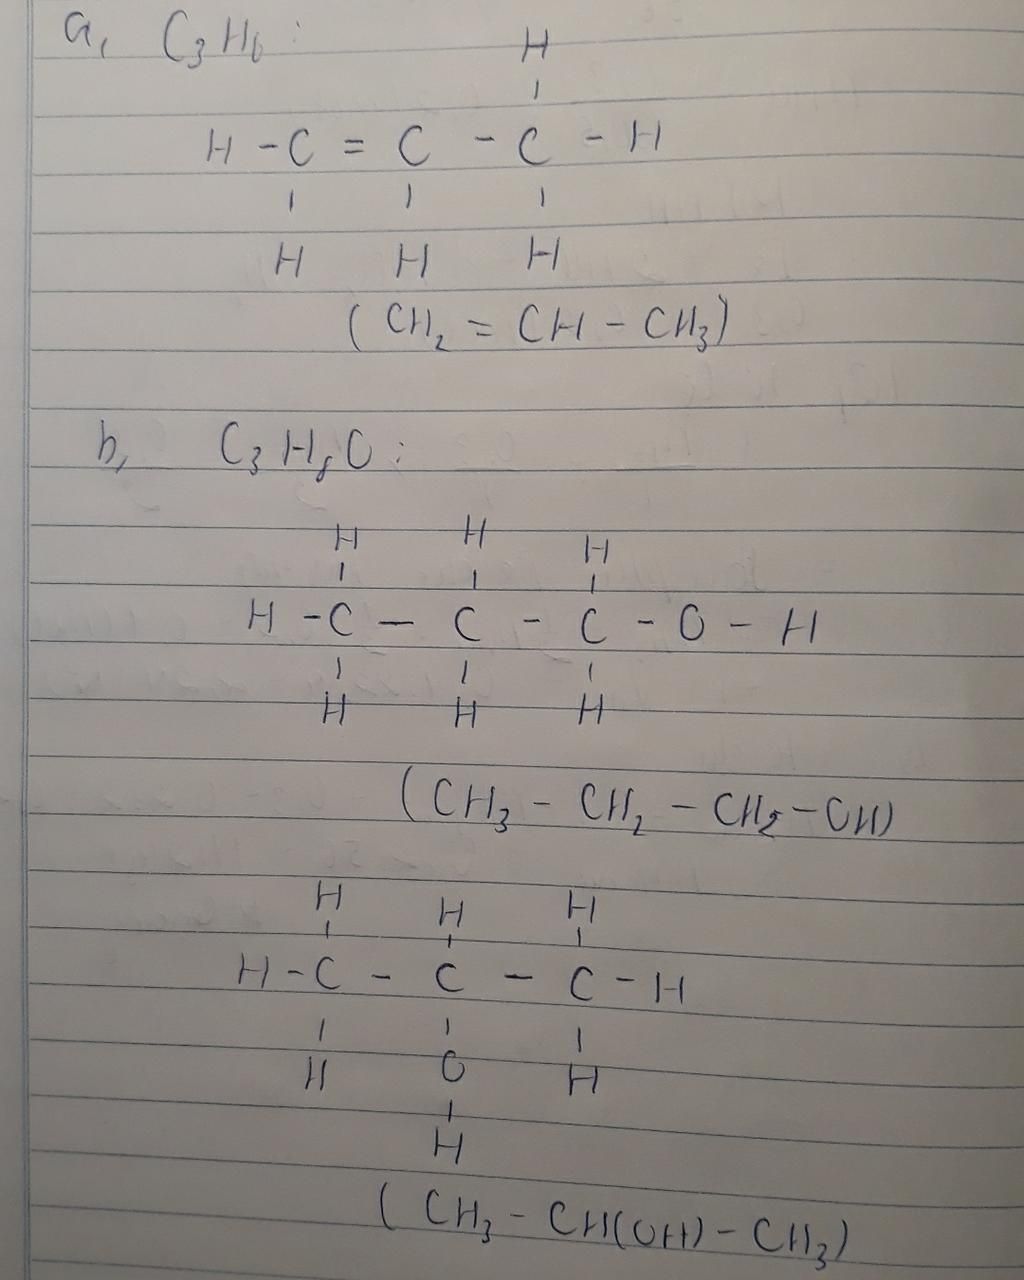 a, C₃H₆:
H
H - C = C - C - H
H H H
(CH₂ = CH - CH₃)
b, C₃H₈O:
H H H
H - C - C - C - O - H
H H H
(CH₃ - CH₂ - CH₂ - OH)
H H H
H - C - C - C - H
H O H
H
(CH₃ - CH(OH) - CH₃)